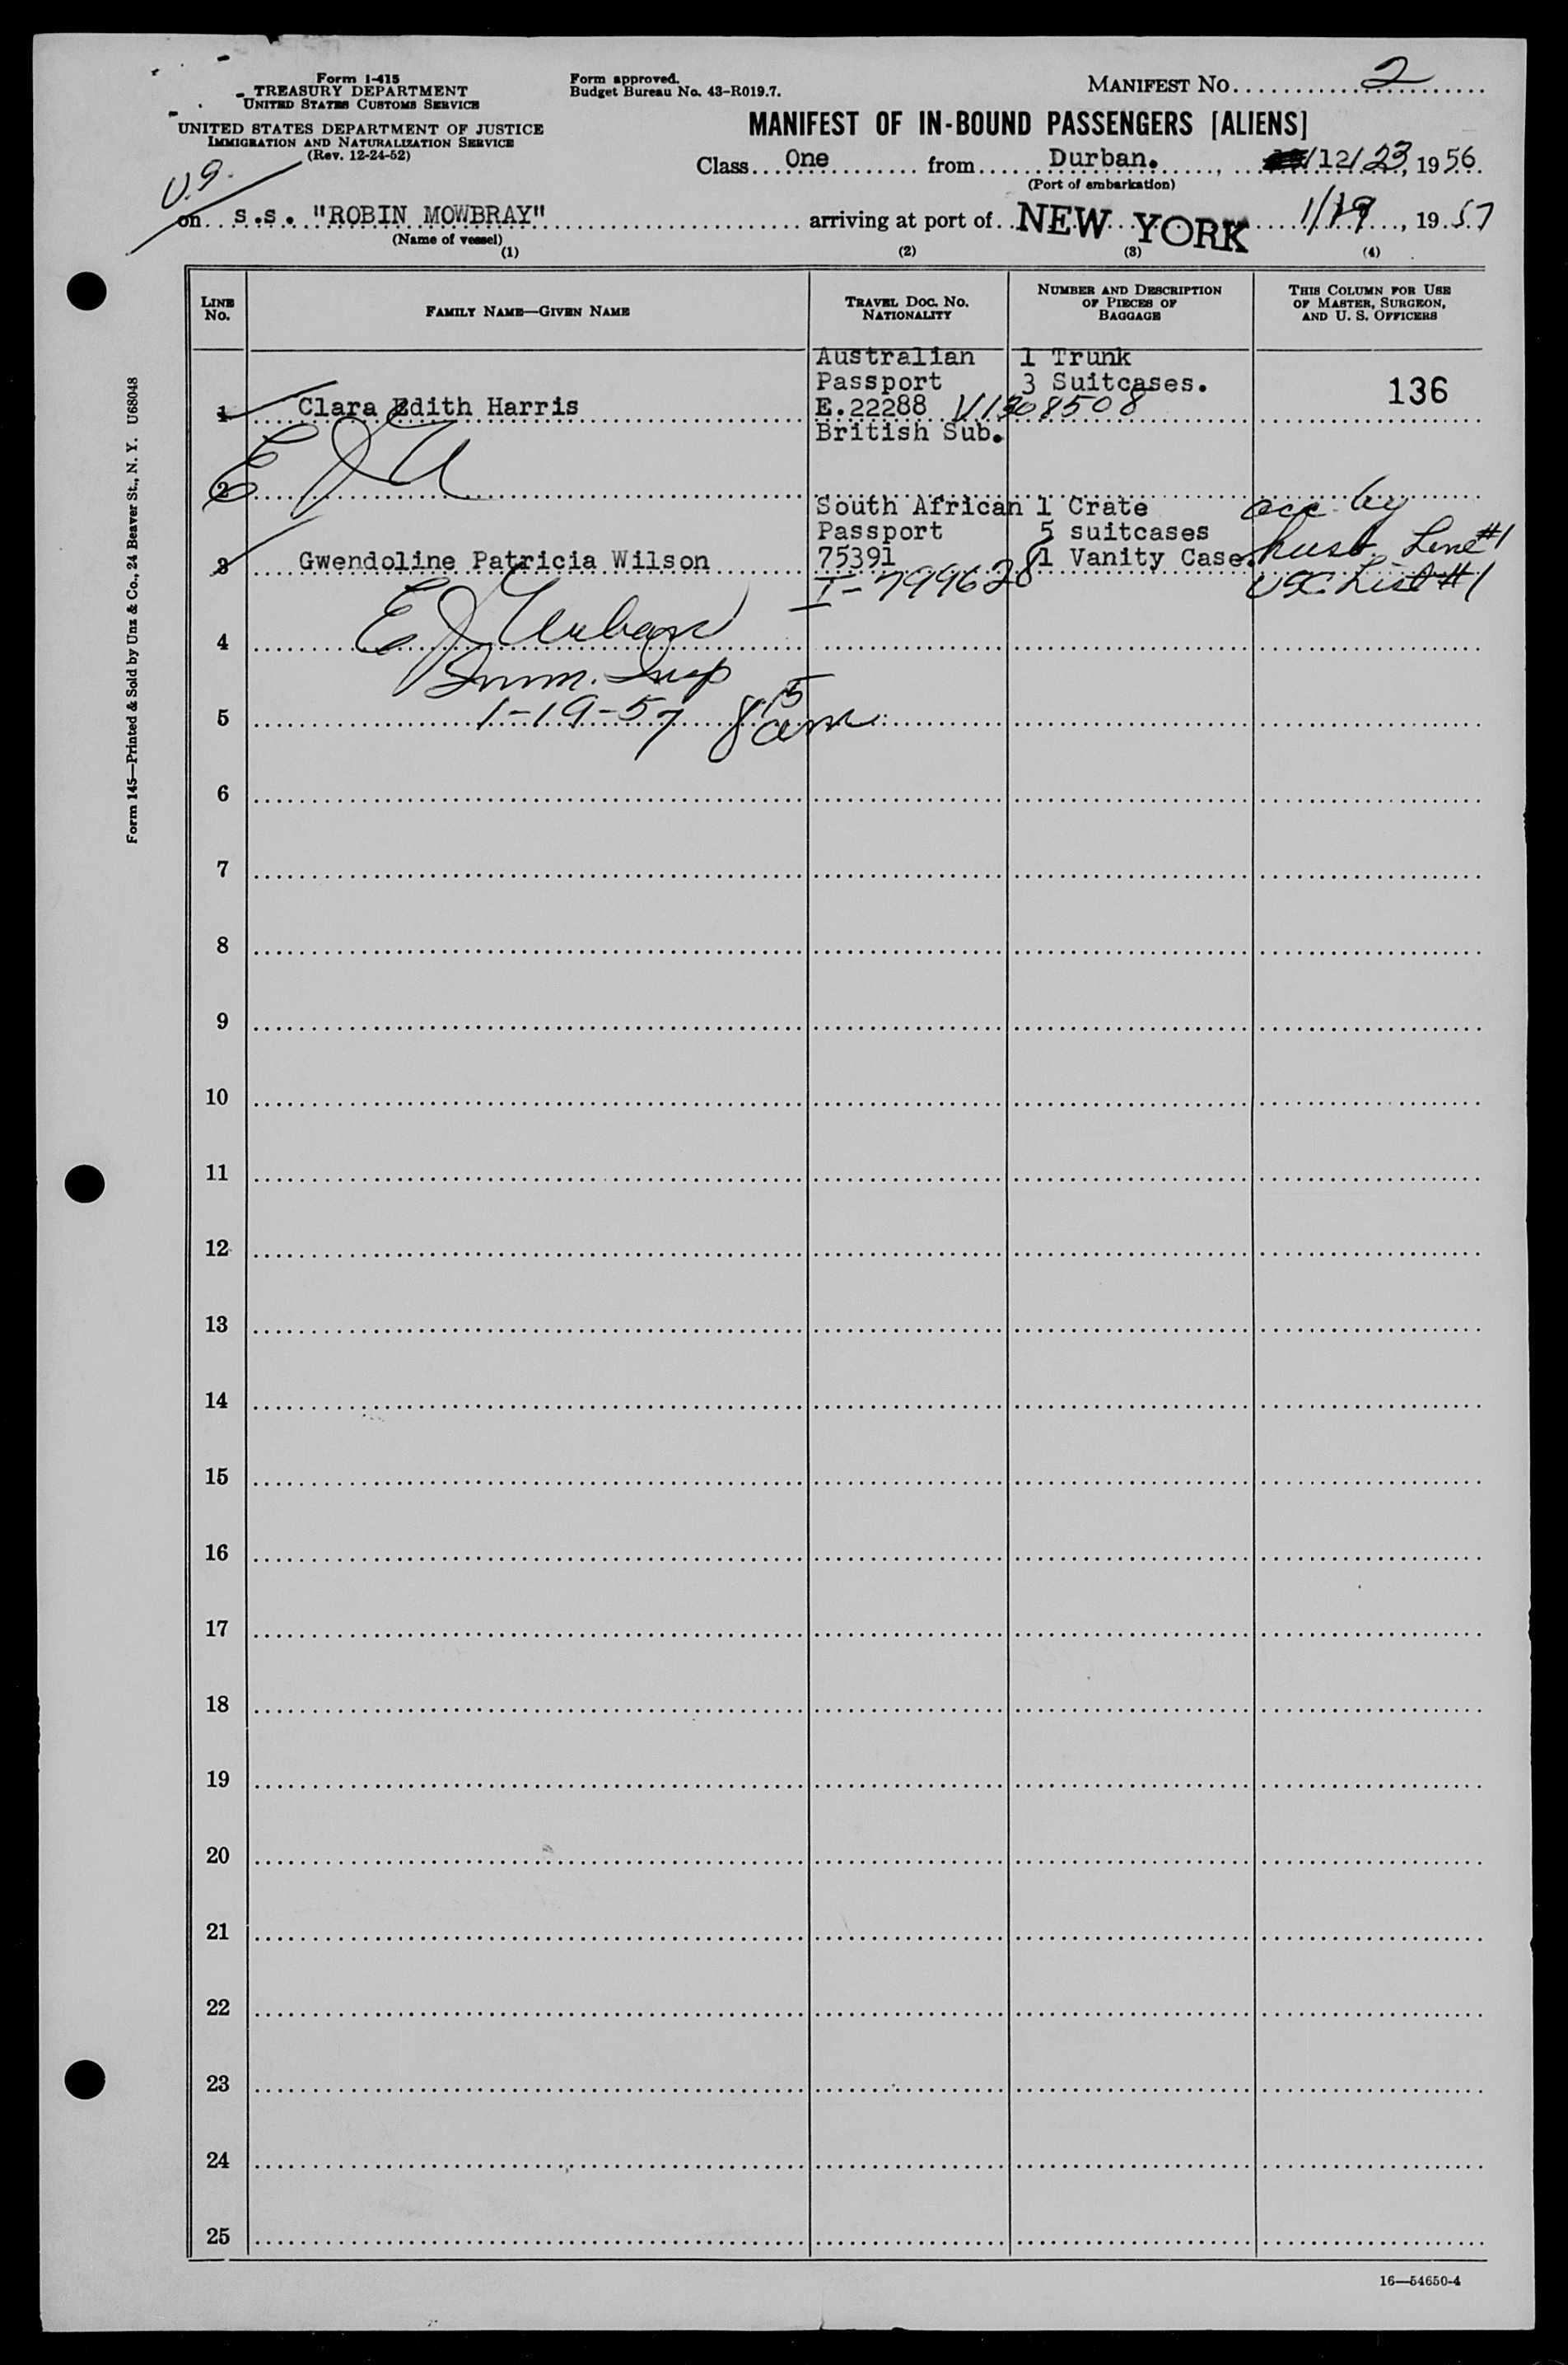 Form I-415
TREASURY DEPARTMENT
UNITED STATES CUSTOMS SERVICE
UNITED STATES DEPARTMENT OF JUSTICE
IMMIGRATION AND NATURALIZATION SERVICE
(Rev. 12-24-52)
Form approved.
Budget Bureau No. 43-R019.7.
MANIFEST NO. 2
MANIFEST OF IN-BOUND PASSENGERS [ALIENS]
Class One from Durban. , 12/23, 1956
(Port of embarkation)
on s.s. "ROBIN MOWBRAY" arriving at port of NEW YORK 1/19, 1957
(Name of vessel)
(1) (2) (3) (4)
LINE NO. FAMILY NAME—GIVEN NAME TRAVEL DOC. NO. NATIONALITY NUMBER AND DESCRIPTION OF PIECES OF BAGGAGE THIS COLUMN FOR USE OF MASTER, SURGEON, AND U. S. OFFICERS
Australian 1 Trunk
Passport 3 Suitcases. 136
1 Clara Edith Harris E.22288 V1308508
British Sub.
E J U
2
South African 1 Crate acc. by
Passport 5 suitcases
3 Gwendoline Patricia Wilson 75391 1 Vanity Case. husb. Line #1
I-799628 USC List #1
E J Urban
4
Imm. Insp
5 1-19-57 8 15 am
6
7
8
9
10
11
12
13
14
15
16
17
18
19
20
21
22
23
24
25
16—54650-4
Form 145—Printed & Sold by Unz & Co., 24 Beaver St., N. Y. U68048